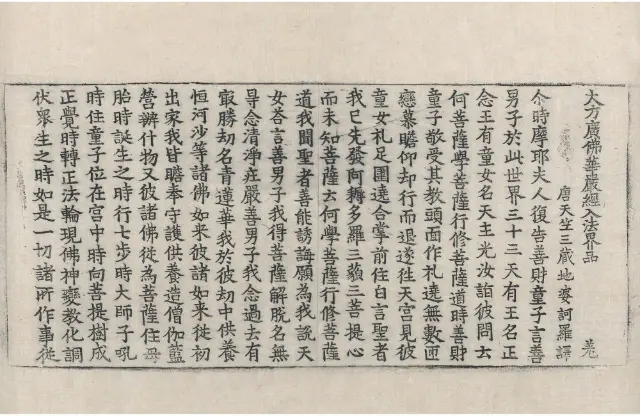 大方廣佛華嚴經入法界品
唐天竺三藏地婆訶羅譯
尒時摩耶夫人復告善財童子言善
男子於此世界三十三天有王名正
念王有童女名天主光汝詣彼問云
何菩薩學菩薩行修菩薩道時善財
童子敬受其教頭面作礼遶無數匝
戀慕瞻仰却行而退遂往天宮見彼
童女礼足圍遶合掌前住白言聖者
我已先發阿耨多羅三藐三菩提心
而未知菩薩云何學菩薩行修菩薩
道我聞聖者善能誘誨願為我說天
女荅言善男子我得菩薩解脫名無
㝵念清淨庄嚴善男子我念過去有
冣勝劫名青蓮華我於彼劫中供養
恒河沙等諸佛如來彼諸如來從初
出家我皆瞻奉守護供養造僧伽藍
營辦什物又彼諸佛從為菩薩住母
胎時誕生之時行七步時大師子吼
時住童子位在宮中時向菩提樹成
正覺時轉正法輪現佛神變教化調
伏衆生之時如是一切諸所作事從